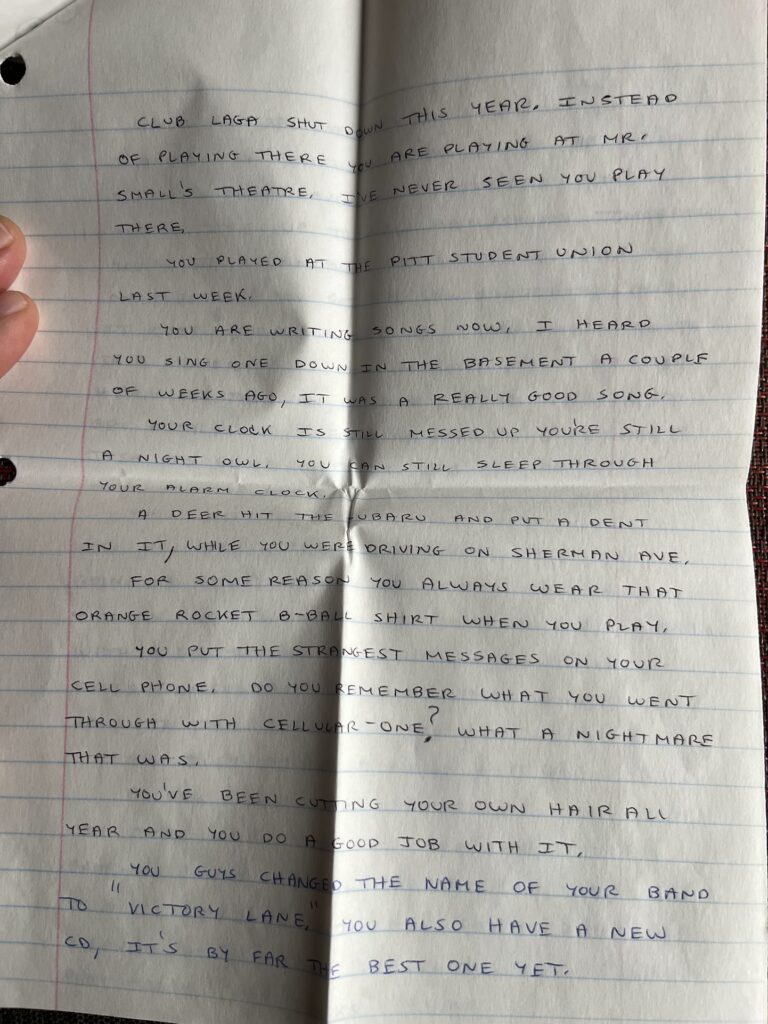 CLUB LAGA SHUT DOWN THIS YEAR. INSTEAD
OF PLAYING THERE YOU ARE PLAYING AT MR.
SMALL'S THEATRE. I'VE NEVER SEEN YOU PLAY
THERE.
YOU PLAYED AT THE PITT STUDENT UNION
LAST WEEK.
YOU ARE WRITING SONGS NOW. I HEARD
YOU SING ONE DOWN IN THE BASEMENT A COUPLE
OF WEEKS AGO, IT WAS A REALLY GOOD SONG.
YOUR CLOCK IS STILL MESSED UP YOU'RE STILL
A NIGHT OWL. YOU CAN STILL SLEEP THROUGH
YOUR ALARM CLOCK.
A DEER HIT THE SUBARU AND PUT A DENT
IN IT, WHILE YOU WERE DRIVING ON SHERMAN AVE.
FOR SOME REASON YOU ALWAYS WEAR THAT
ORANGE ROCKET B-BALL SHIRT WHEN YOU PLAY.
YOU PUT THE STRANGEST MESSAGES ON YOUR
CELL PHONE. DO YOU REMEMBER WHAT YOU WENT
THROUGH WITH CELLULAR-ONE? WHAT A NIGHTMARE
THAT WAS.
YOU'VE BEEN CUTTING YOUR OWN HAIR ALL
YEAR AND YOU DO A GOOD JOB WITH IT.
YOU GUYS CHANGED THE NAME OF YOUR BAND
TO "VICTORY LANE." YOU ALSO HAVE A NEW
CD, IT'S BY FAR THE BEST ONE YET.